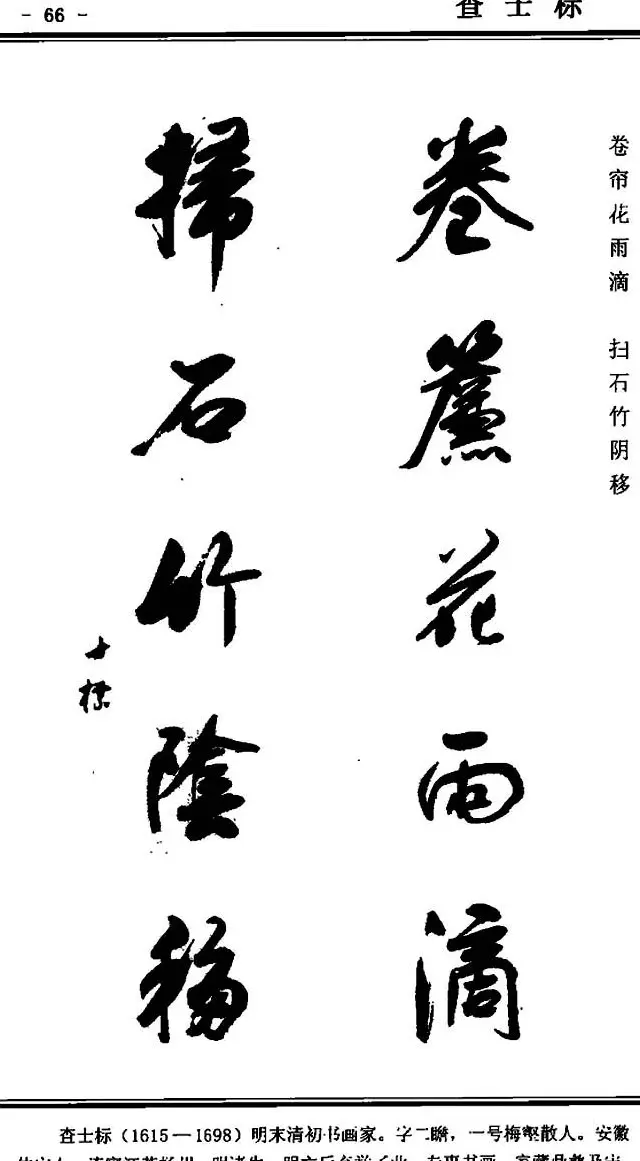 - 66 -
查士标
卷帘花雨滴 扫石竹阴移
卷簾花雨滴
掃石竹陰移
士標
查士标（1615—1698）明末清初书画家。字二瞻，一号梅壑散人。安徽